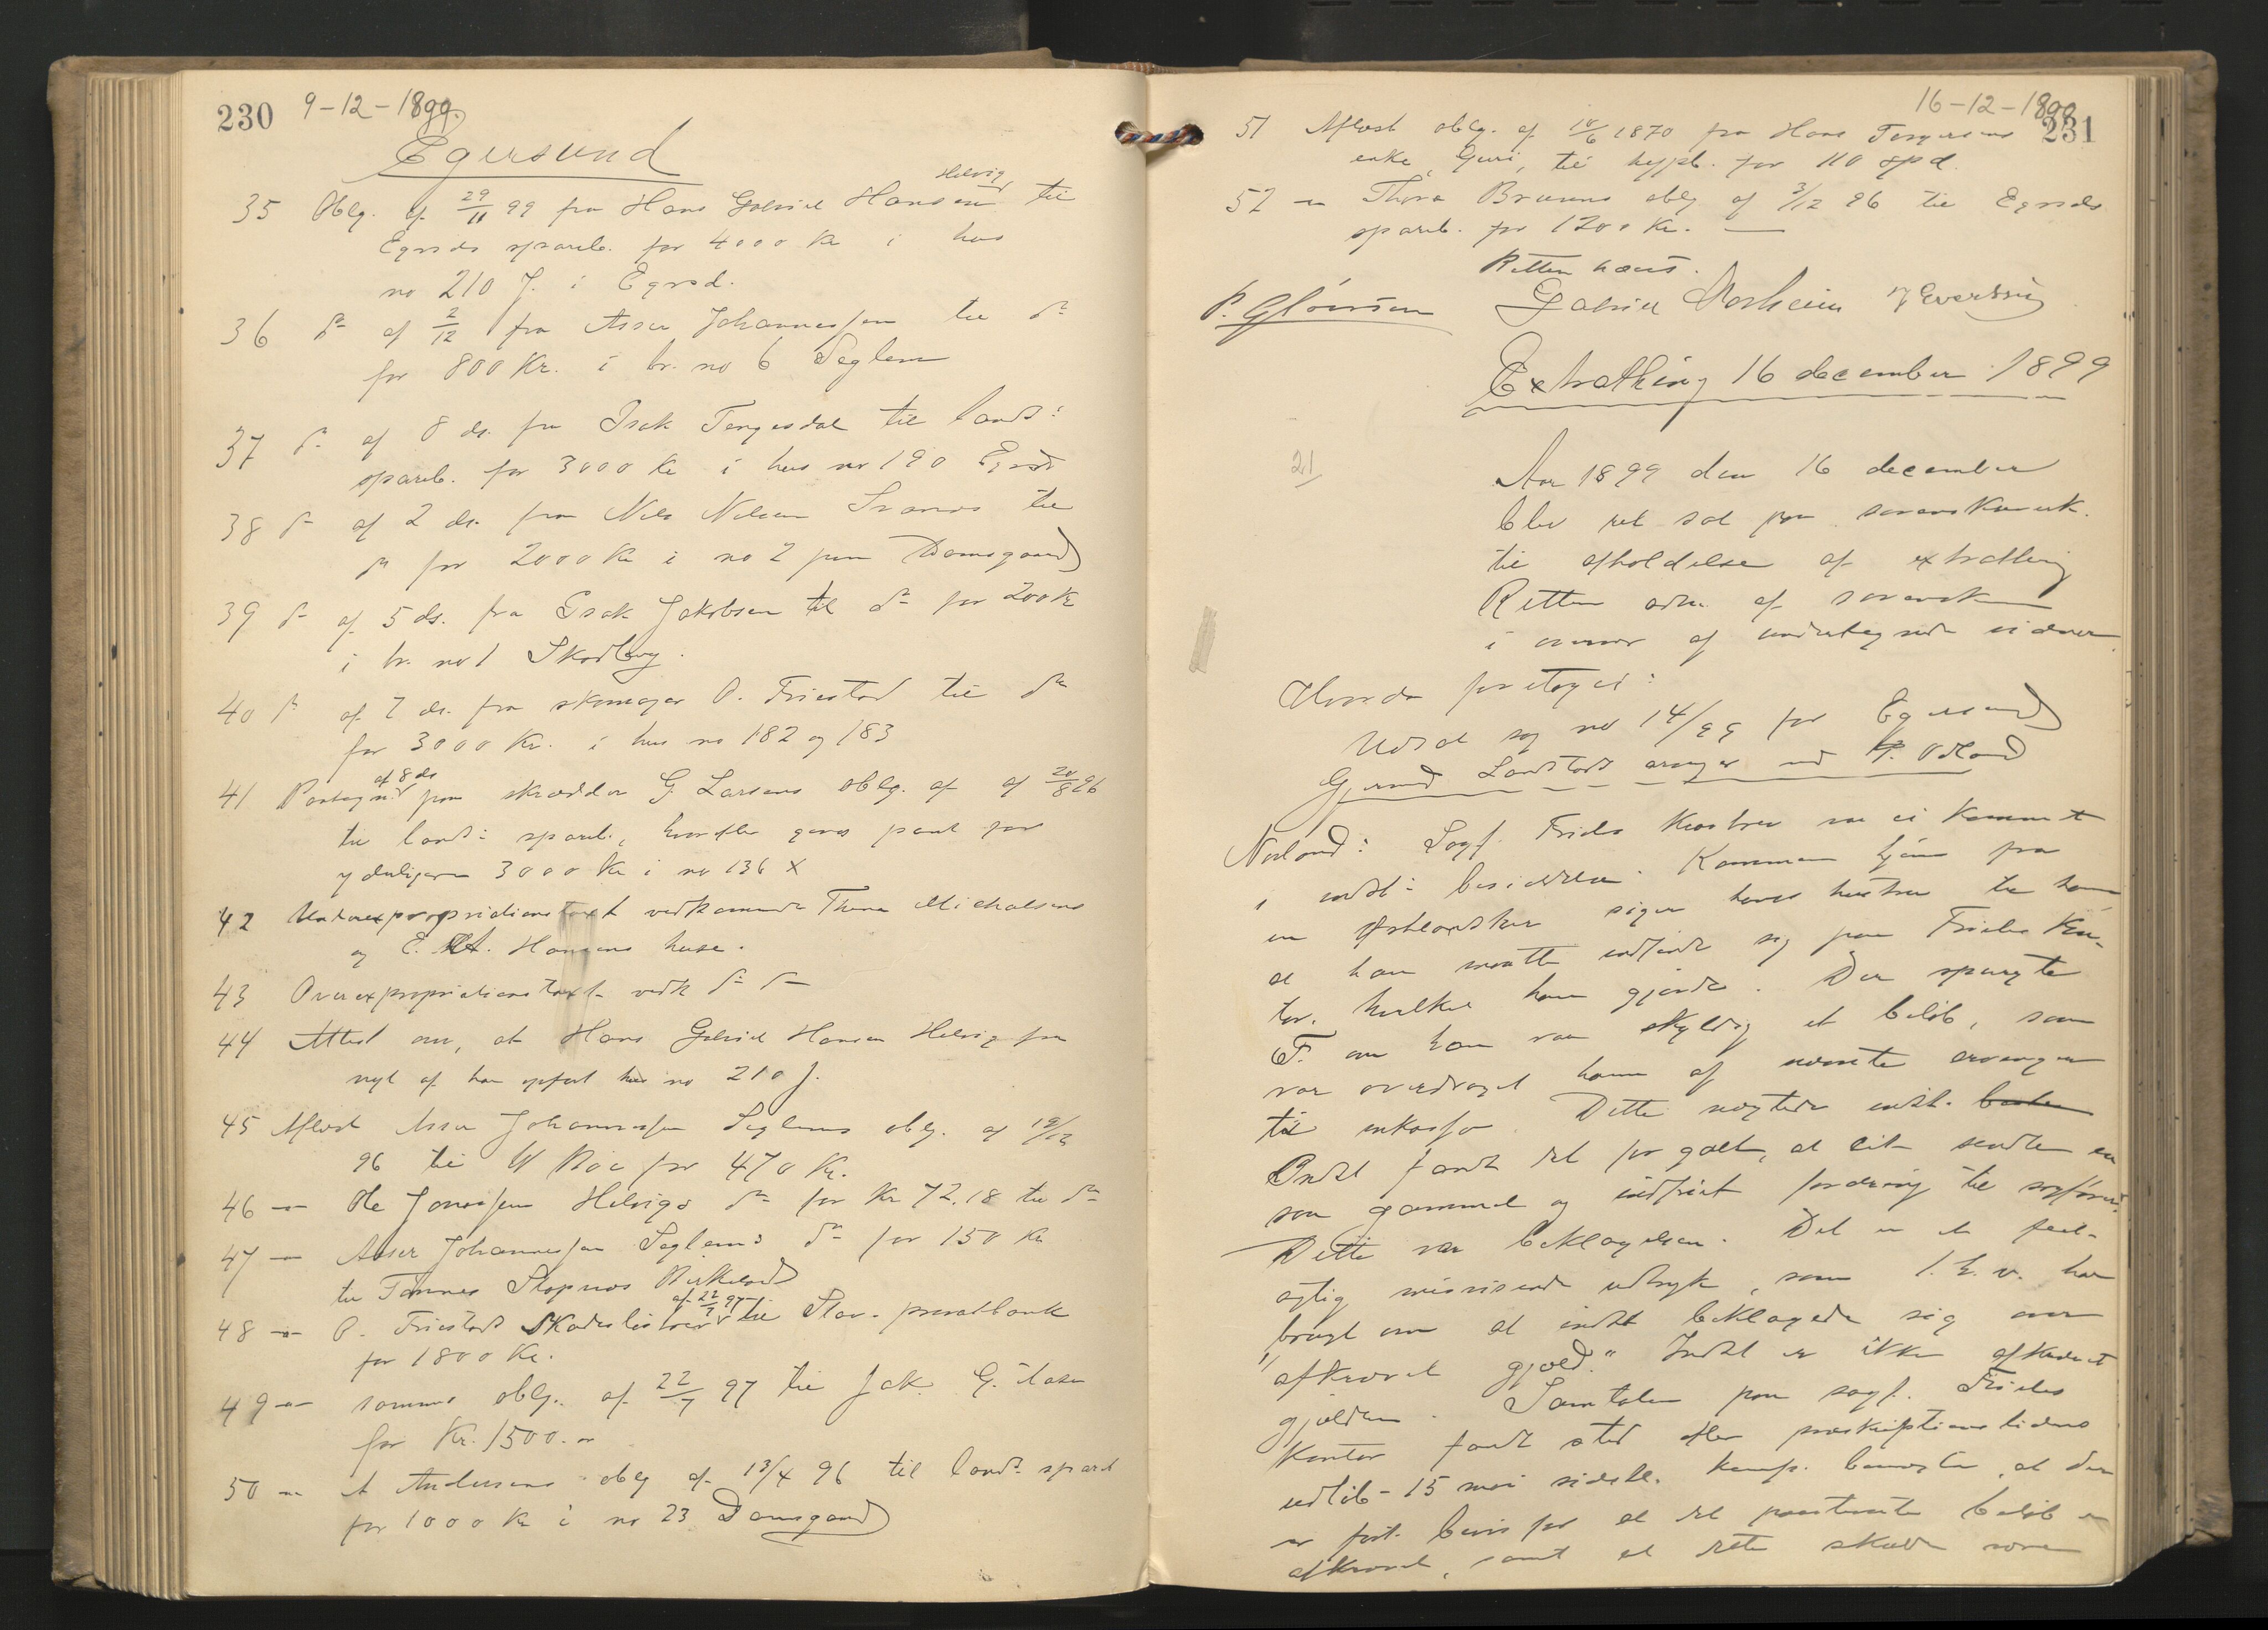 230 9-12-1899.
Egersund
35 Oblg. af 29/11 99 fra Hans Gabriel Hansen Helvig til
Egrsds spareb. for 4000 Kr i hus
no 210 J. i Egrsd.
36 do af 2/12 fra Asser Johannessen til do
for 800 Kr. i br. no 6 Seglem
37 do af 8 ds. fra Isak Tengesdal til landd:
spareb. for 3000 Kr i hus no 190 Egrsd
38 do af 2 ds. fra Nils Nilsen Svanes til
do for 2000 Kr i no 2 paa Damsgaard
39 do af 5 ds. fra Isak Jakobsen til do for 200 Kr
i br. no 1 Skadberg.
40 do af 7 ds. fra skomager O. Friestad til do
for 3000 Kr. i hus no 182 og 183
41 Paategn. af 8 ds paa skrædder G. Larsens oblg. af af 20/8 96
til landd: spareb., hvorefter gives pant for
yderligere 3000 Kr i no 136 x
42 Underexpropriationstaxt vedkommende Thina Michalsens
og E. A. Hansens huse.
43 Overexpropriationstaxt vedk do do
44 Attest om, at Hans Gabriel Hansen Helvig fra
nyt af har opført hus no 210 J.
45 Aflæst Asser Johannessen Seglems oblg. af 19/12
96 til W Roe for 470 Kr.
46 — Ole Jonassen Helvigs do for Kr 72.18 til do
47 — Asser Johannessen Seglems do for 150 Kr
til Tønnes Stapnes Birkeland
48 — O. Friestads Skadesløsbrev af 22/7 97 til Stav. privatbank
for 1800 Kr.
49 — sammes oblg. af 22/7 97 til Jak. G.
for Kr. 1500.—
50 — A Andersens oblg af 13/4 96 til landd. spareb
for 1000 Kr i no 23 Damsgaard
16-12-1899
231
51 Aflæst oblg. af 10/6 1870 fra Hans Torgersens
enke, Guri, til hypb. for 110 spd.
52 — Thora Bruuns oblg af 3/12 86 til Egrsds
spareb. for 1200 Kr. —
Retten hævet.
Gabriel Mosheim
Extrathing 16 december 1899
21
Aar 1899 den 16 december
blev ret sat paa sorenskriverk.
til afholdelse af extrathing
Retten adm. af sorenskr
i overvær af undertegnede vidner.
Hvorda foretoges:
Udsat sag no 14/99 for Egersund
Gjerud Landstads arvinger mod P. Odland
Norland: Sagf. Frides Kvos brev var ei kommet
i indst: besiddelse. Kommen hjem fra
en østlandstur siger hans hustru til ham
at han maatte indfinde sig paa Frides Kon-
tor, hvilket han gjorde. Der spurgte
F. om han var skyldig et beløb, som
var overdraget ham af nævnte arvinger
til inkasso. Dette nægtede indst.
Indst fandt det for galt, at sendte en
saa gammel og indfriet fordring til sagfører.
Dette var beklagelsen. Det er et feil-
agtig misvisende udtryk, som l. k. v. har
brugt om at indst beklagede sig over
"afkrævet gjæld." Indst er ikke afkrævet
gjælden. Samtalen paa sagf. Frides
Kontor fandt sted efter præskriptionstidens
udløb - 15 mai sidstl. Komp. bemærker, at der
er ført bevis for at det paastævnte beløb er
afkrævet, samt at dette skulde være